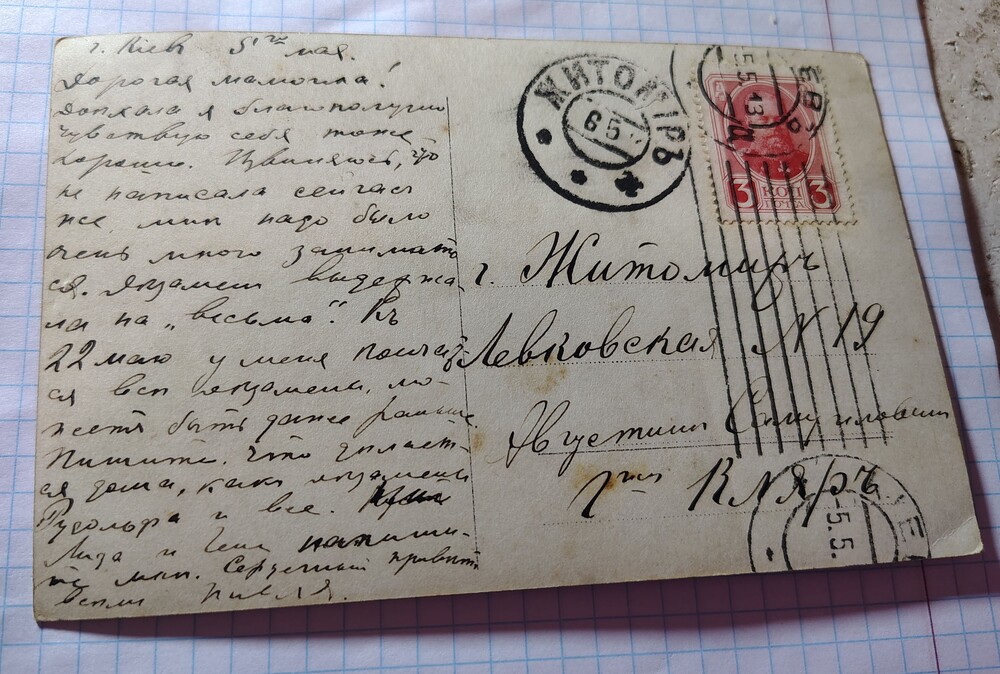 г. Кіев 5го мая.
Дорогая мамочка!
Доехала я благополучно
чувствую себя тоже
хорошо. Извиняюсь, что
не написала сейчас
же, мне надо было
очень много занимать
ся. Экзамен выдержа-
ла на „весьма". Къ
22 маю у меня кончат
ся все экзамены, мо-
жетъ быть даже раньше.
Пишите. Что делает-
ся дома, какъ экзамены
Рудольфа и все.
Лида и Геня напиши-
те мне. Сердечный приветъ
всем
ЖИТОМІРЪ
6 5
5.5.13
Д
3 КОП 3
ПОЧТА
г. Житомиръ
Левковская N 19
Августини Самуиловны
Гжи Кляръ
-5.5.